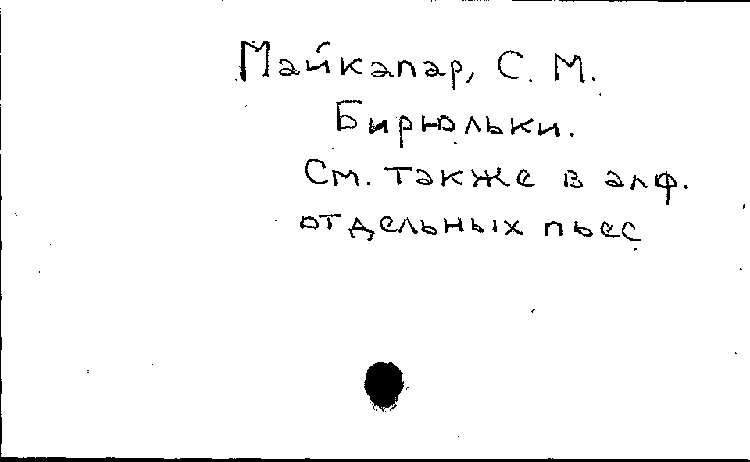 Майкапар, С. М.
Бирюльки.
См. также в алф.
отдельных пьес